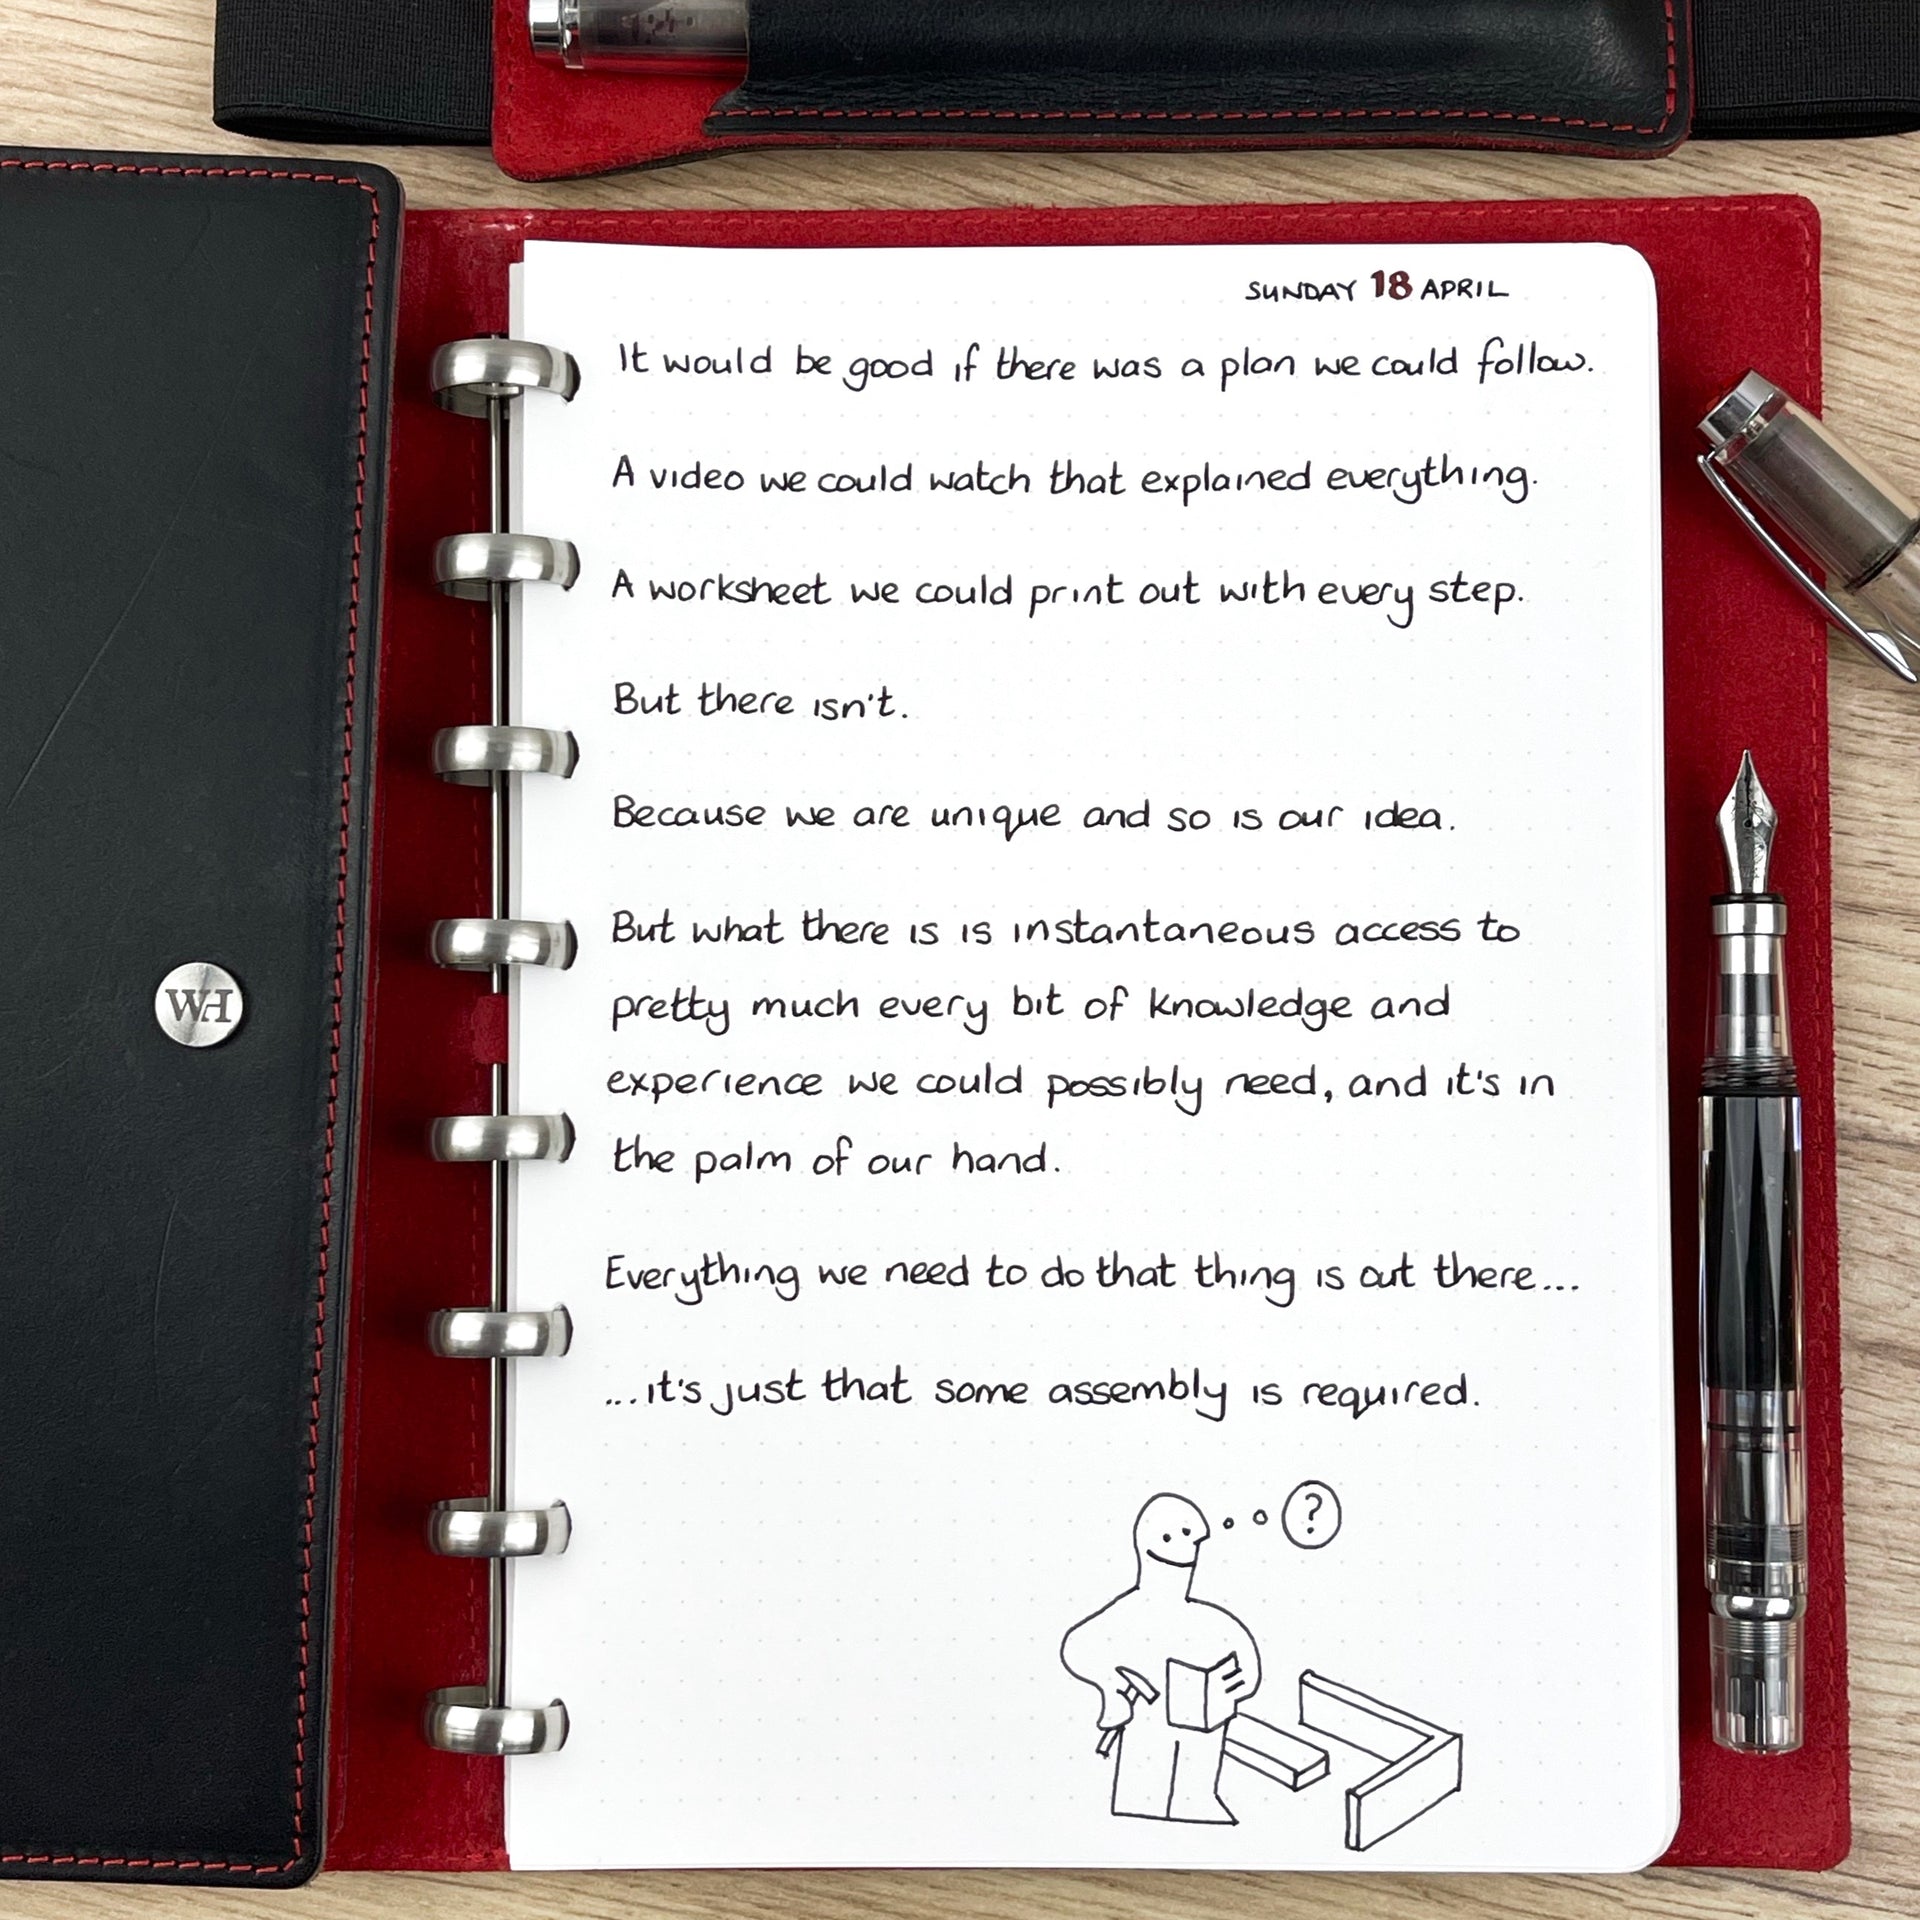 SUNDAY 18 APRIL
It would be good if there was a plan we could follow.
A video we could watch that explained everything.
A worksheet we could print out with every step.
But there isn't.
Because we are unique and so is our idea.
But what there is is instantaneous access to
pretty much every bit of knowledge and
experience we could possibly need, and it's in
the palm of our hand.
Everything we need to do that thing is out there...
...it's just that some assembly is required.
?
WH